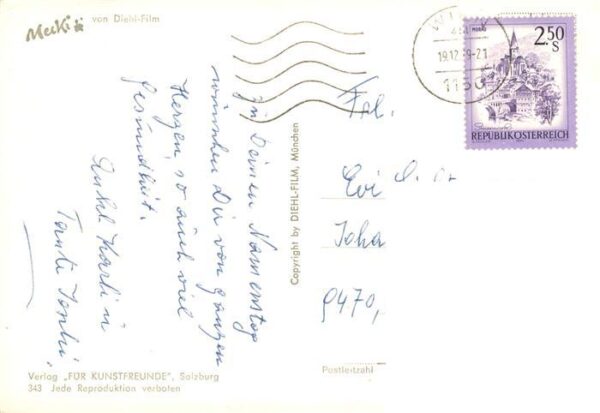 Mecki von Diehl-Film
Zu Deinem Namenstag
wünschen Dir von ganzen
Herzen, so auch viel
Gesundheit.
Onkel Karli u
Tante
Verlag „FÜR KUNSTFREUNDE", Salzburg
343 Jede Reproduktion verboten
Copyright by DIEHL-FILM, München
WIEN
19.12
-21
1150
2.50
S
MURAU
REPUBLIK ÖSTERREICH
Frl.
Evi
Joha
9470,
Postleitzahl